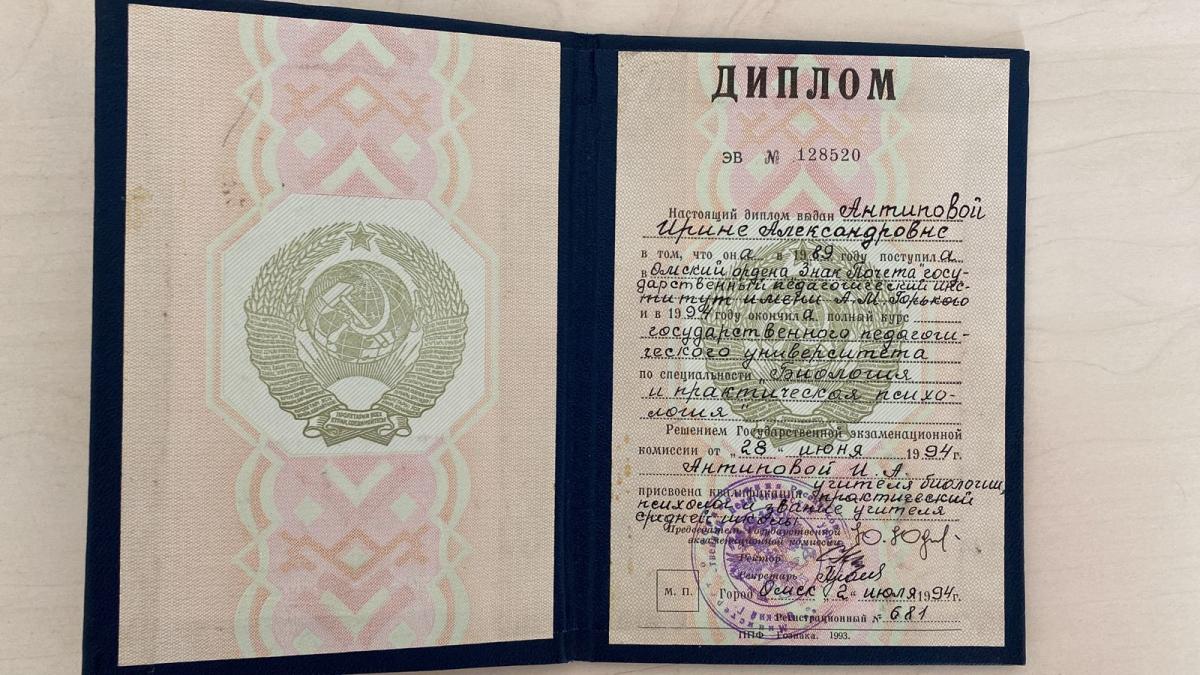 ПРОЛЕТАРИИ ВСЕХ
СТРАН, СОЕДИНЯЙТЕСЬ!
ДИПЛОМ
ЭВ № 128520
Настоящий диплом выдан Антиповой
Ирине Александровне
в том, что она в 1989 году поступила
в Омский ордена „Знак Почета" госу-
дарственный педагогический инс-
титут имени А.М. Горького
и в 1994 году окончила полный курс
государственного педагоги-
ческого университета
по специальности „Биология
и практическая психо-
логия"
Решением Государственной экзаменационной
комиссии от „28" июня 1994 г.
Антиповой И. А.
присвоена квалификация учителя биологии,
практический
психолог и звание учителя
средней школы
Председатель Государственной
экзаменационной комиссии
Ректор
Секретарь
М. П.
Город Омск „2" июля 1994 г.
Регистрационный № 681
ППФ Гознака. 1993.